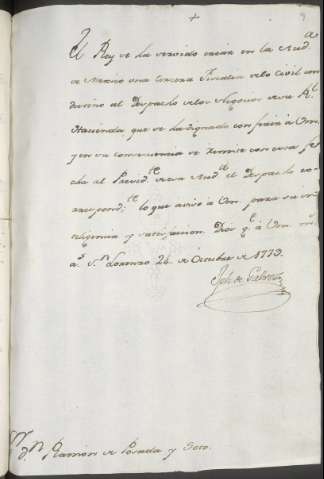 +
El Rey se ha servido crear en la Aud.ª
de Mexico una tercera Fiscalia de lo Civil con
destino al Despacho de los Negocios de su R.l
Hacienda que se ha dignado conferir à Vm.
y en su consecuencia se remite con esta fe
cha al Presid.te de esa Aud.a el Despacho co-
rrespond.te lo que aviso à Vm. para su in
teligencia y satisfaccion. Dios g.e à Vm. m.s
a.s S.n Lorenzo 24 de Octubre de 1779.
Jph de Galvez
S.or D.n Ramon de Posada y Soto.